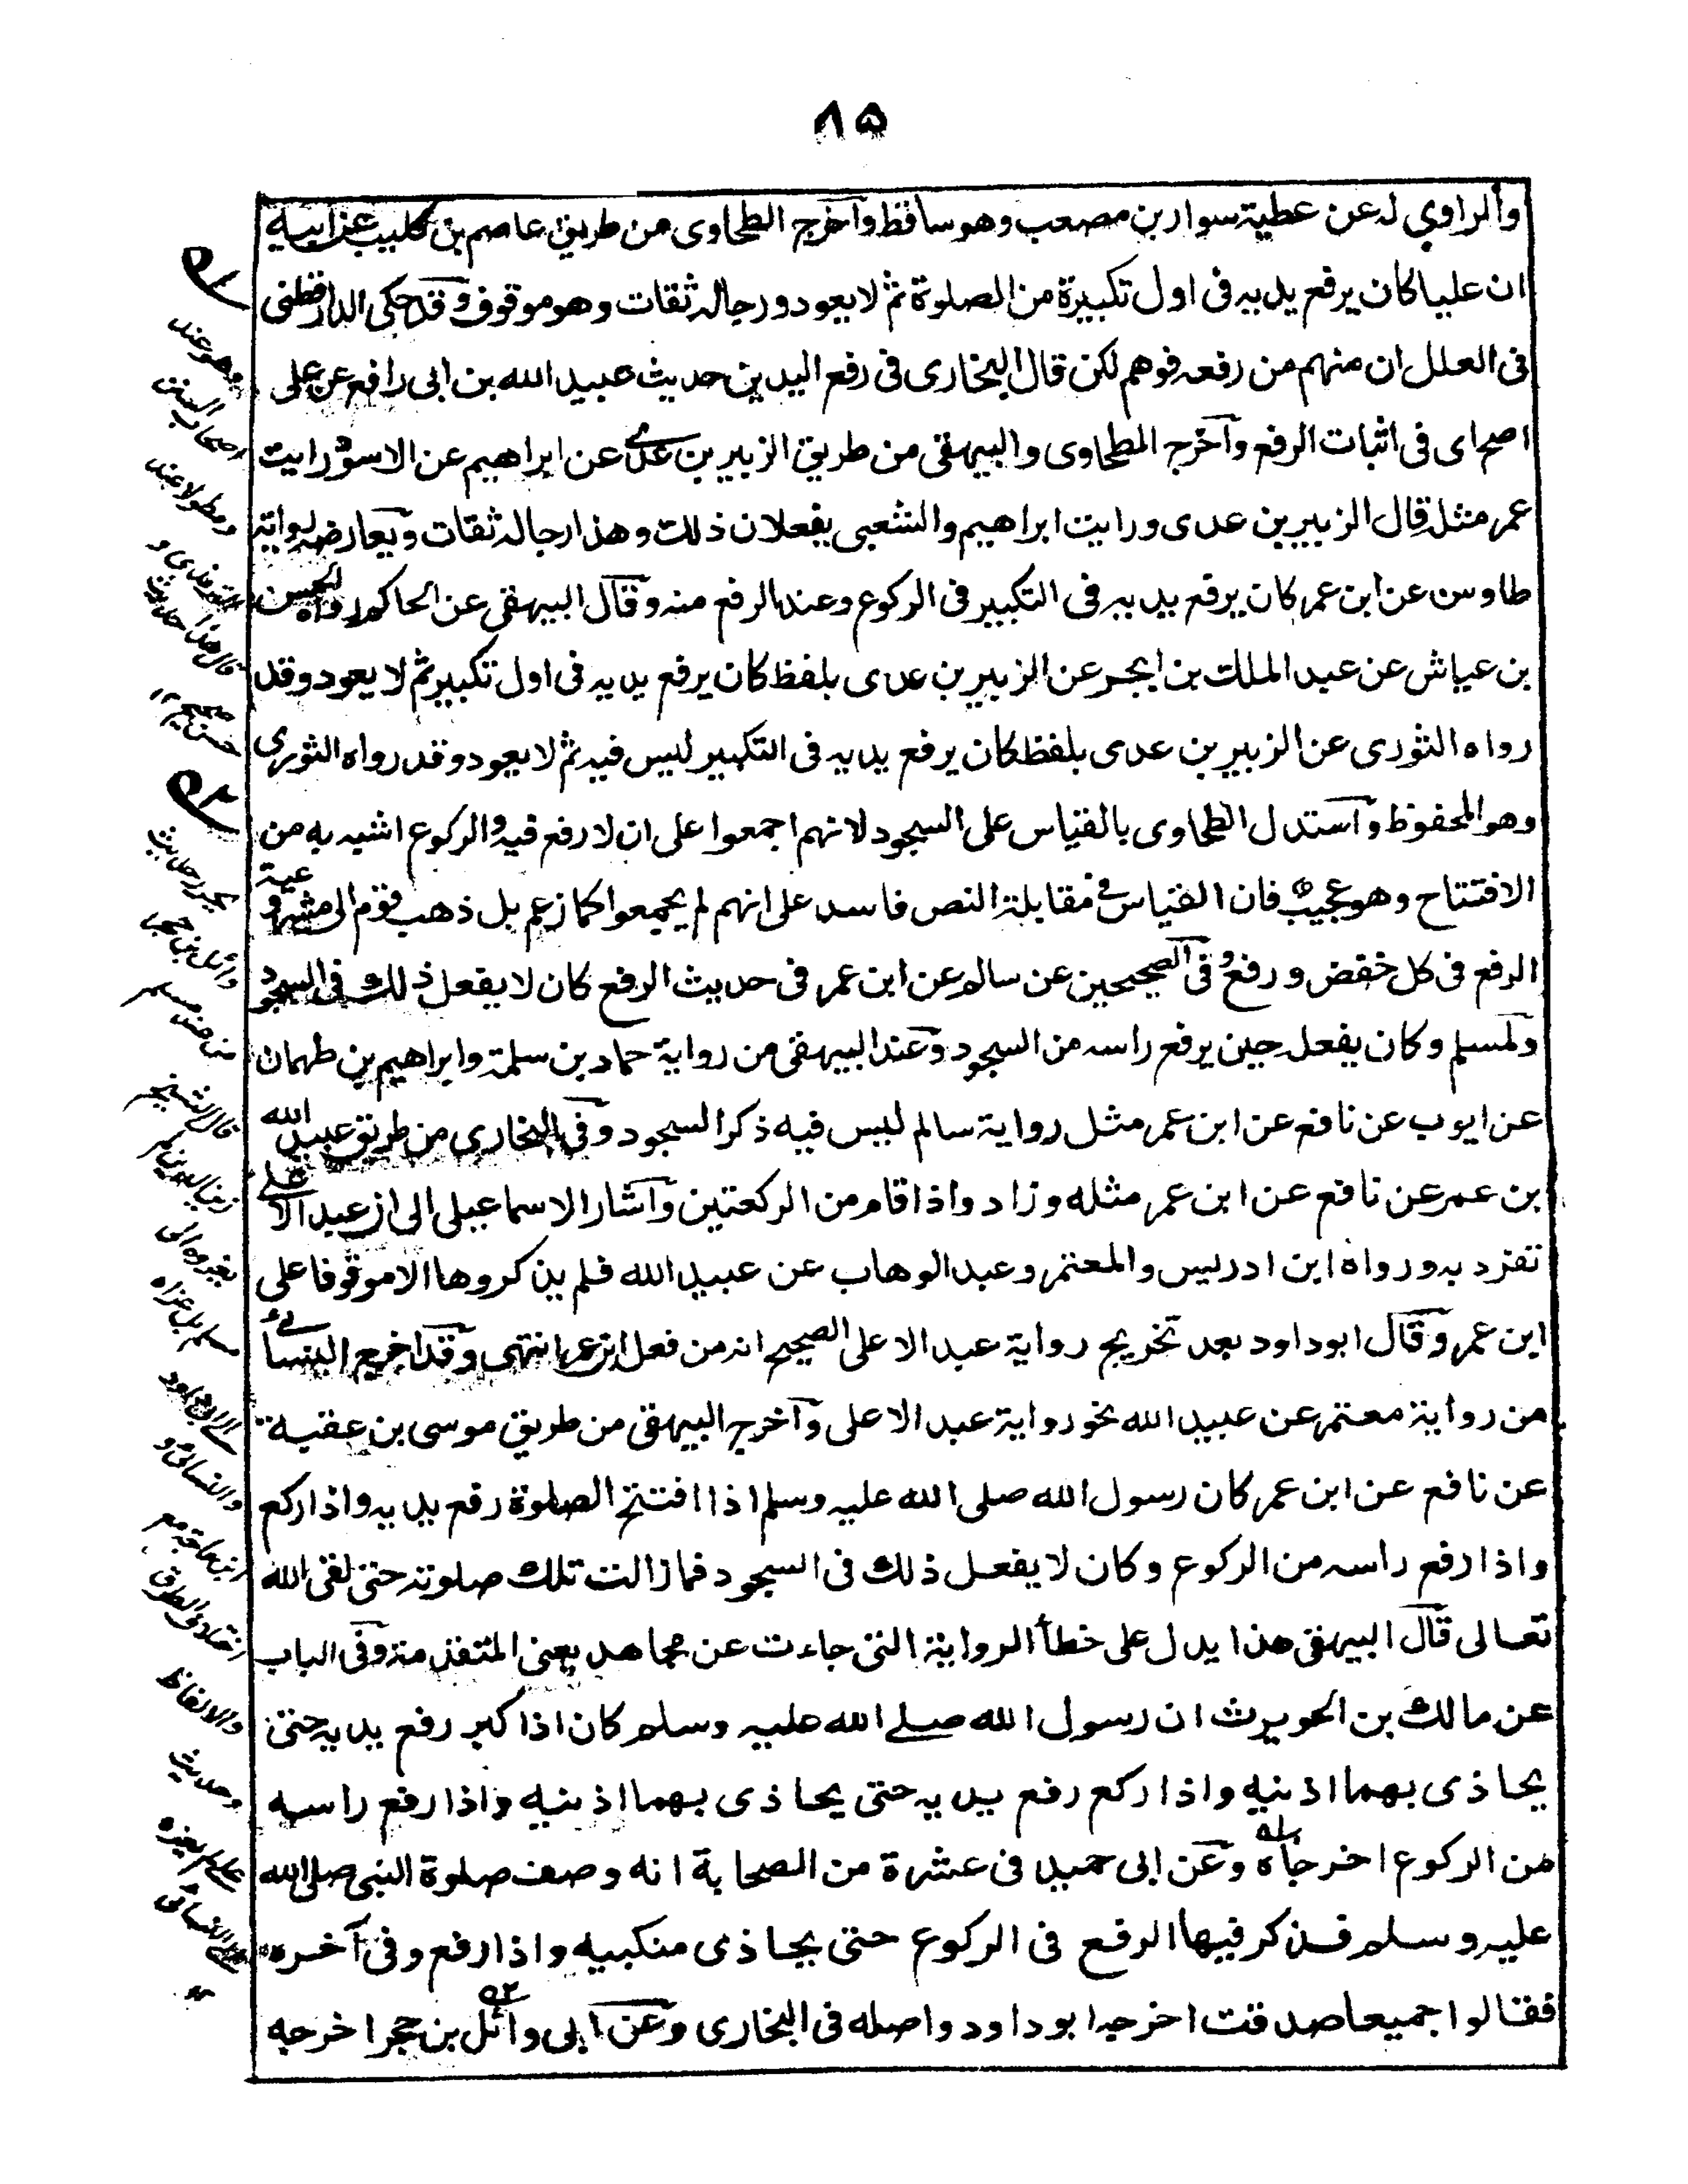 ٨٥
والراوي له عن عطية سوار بن مصعب وهو ساقط وآخرج الطحاوى من طريق عاصم بن كليب عن ابيه
ان عليا كان يرفع يديه فى اول تكبيرة من الصلوة ثم لا يعود ورجاله ثقات وهو موقوف وقد حكى الدارقطنى
فى العلل ان منهم من رفعه فوهم لكن قال البخارى فى رفع اليدين حديث عبيد الله بن ابى رافع عن على
اصح اى فى اثبات الرفع وآخرج الطحاوى والبيهقى من طريق الزبير بن عدى عن ابراهيم عن الاسود رايت
عمر مثله قال الزبير بن عدى ورايت ابراهيم والشعبى يفعلان ذلك وهذا رجاله ثقات ويعارضه رواية
طاوس عن ابن عمر كان يرفع يديه فى التكبير فى الركوع وعند الرفع منه وقال البيهقى عن الحاكم رواه الحسن
بن عياش عن عبد الملك بن ابجر عن الزبير بن عدى بلفظ كان يرفع يديه فى اول تكبير ثم لا يعود وقد
رواه الثورى عن الزبير بن عدى بلفظ كان يرفع يديه فى التكبير ليس فيه ثم لا يعود وقد رواه الثورى
وهو المحفوظ وآستدل الطحاوى بالقياس على السجود لانهم اجمعوا على ان لا رفع فيه والركوع اشبه به من
الافتتاح وهو عجيب فان القياس فى مقابلة النص فاسد على انهم لم يجمعوا كما زعم بل ذهب قوم الى مشروعية
الرفع فى كل خفض ورفع وفى الصحيحين عن سالم عن ابن عمر فى حديث الرفع كان لا يفعل ذلك فى السجود
ولمسلم وكان يفعل حين يرفع راسه من السجود وعند البيهقى من رواية حماد بن سلمة وابراهيم بن طهمان
عن ايوب عن نافع عن ابن عمر مثل رواية سالم ليس فيه ذكر السجود وفى البخارى من طريق عبيد الله
بن عمر عن نافع عن ابن عمر مثله وزاد واذا قام من الركعتين وآشار الاسماعيلى الى ان عبد الاعلى
تفرد به ورواه ابن ادريس والمعتمر وعبد الوهاب عن عبيد الله فلم يذكروها الا موقوفا على
ابن عمر وقال ابو داود بعد تخريج رواية عبد الاعلى الصحيح انه من فعل ابن عمر انتهى وقد اخرج النسائى
من رواية معتمر عن عبيد الله نحو رواية عبد الاعلى وآخرج البيهقى من طريق موسى بن عقبة
عن نافع عن ابن عمر كان رسول الله صلى الله عليه وسلم اذا افتتح الصلوة رفع يديه واذا ركع
واذا رفع راسه من الركوع وكان لا يفعل ذلك فى السجود فما زالت تلك صلوته حتى لقى الله
تعالى قال البيهقى هذا يدل على خطأ الرواية التى جاءت عن مجاهد يعنى المتقدمة وفى الباب
عن مالك بن الحويرث ان رسول الله صلى الله عليه وسلم كان اذا كبر رفع يديه حتى
يحاذى بهما اذنيه واذا ركع رفع يديه حتى يحاذى بهما اذنيه واذا رفع راسه
من الركوع اخرجاه وعن ابى حميد فى عشرة من الصحابة انه وصف صلوة النبى صلى الله
عليه وسلم فذكر فيها الرفع فى الركوع حتى يحاذى منكبيه واذا رفع وفى آخره
فقالوا جميعا صدقت اخرجه ابو داود واصله فى البخارى وعن ابى وائل بن حجر اخرجه
وهو عند
اصحاب السنن
ومطولا عند
الترمذى و
قال هذا حديث
حسن صحيح ١٢
حديث
وائل بن حجر
عند مسلم
قال الشيخ
والنسائى و
ابن ماجة مع
والالفاظ
وحديث